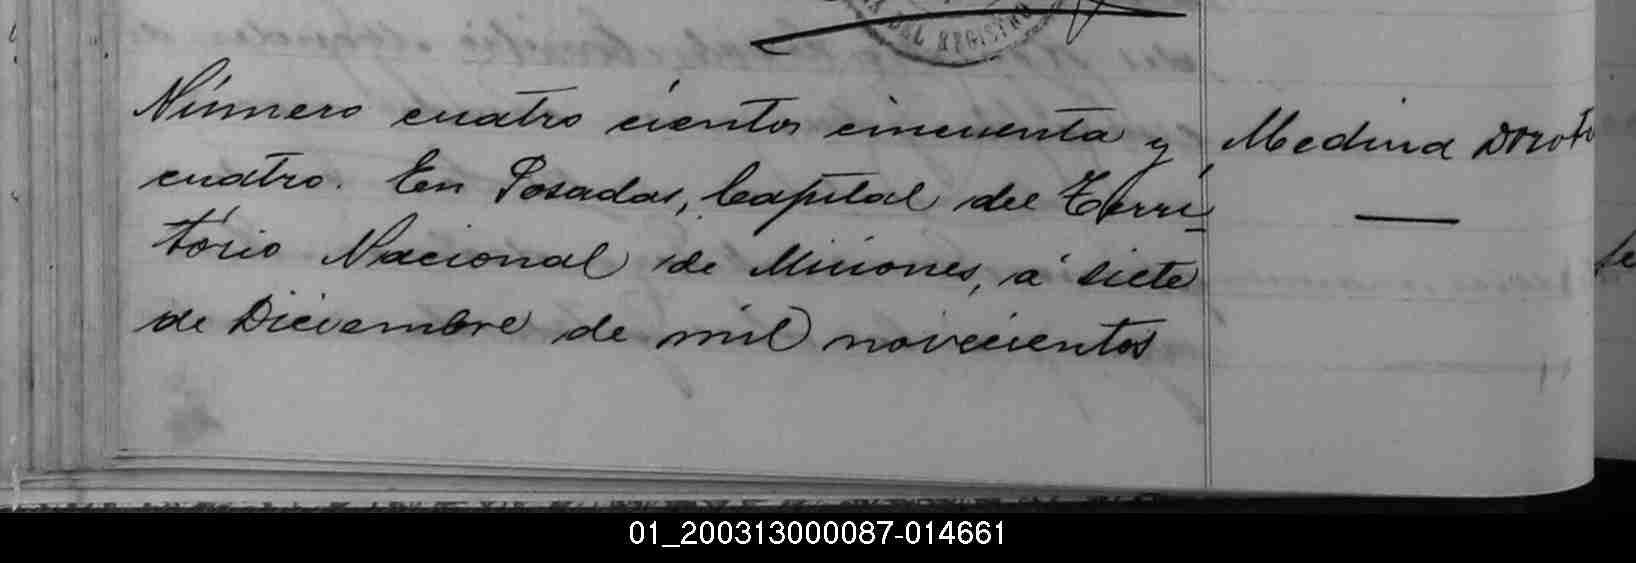 DEL REGISTRO
Número cuatro cientos cincuenta y
cuatro. En Posadas, Capital del Terri
torio Nacional de Misiones, á siete
de Diciembre de mil novecientos
Medina Dorot
01_200313000087-014661